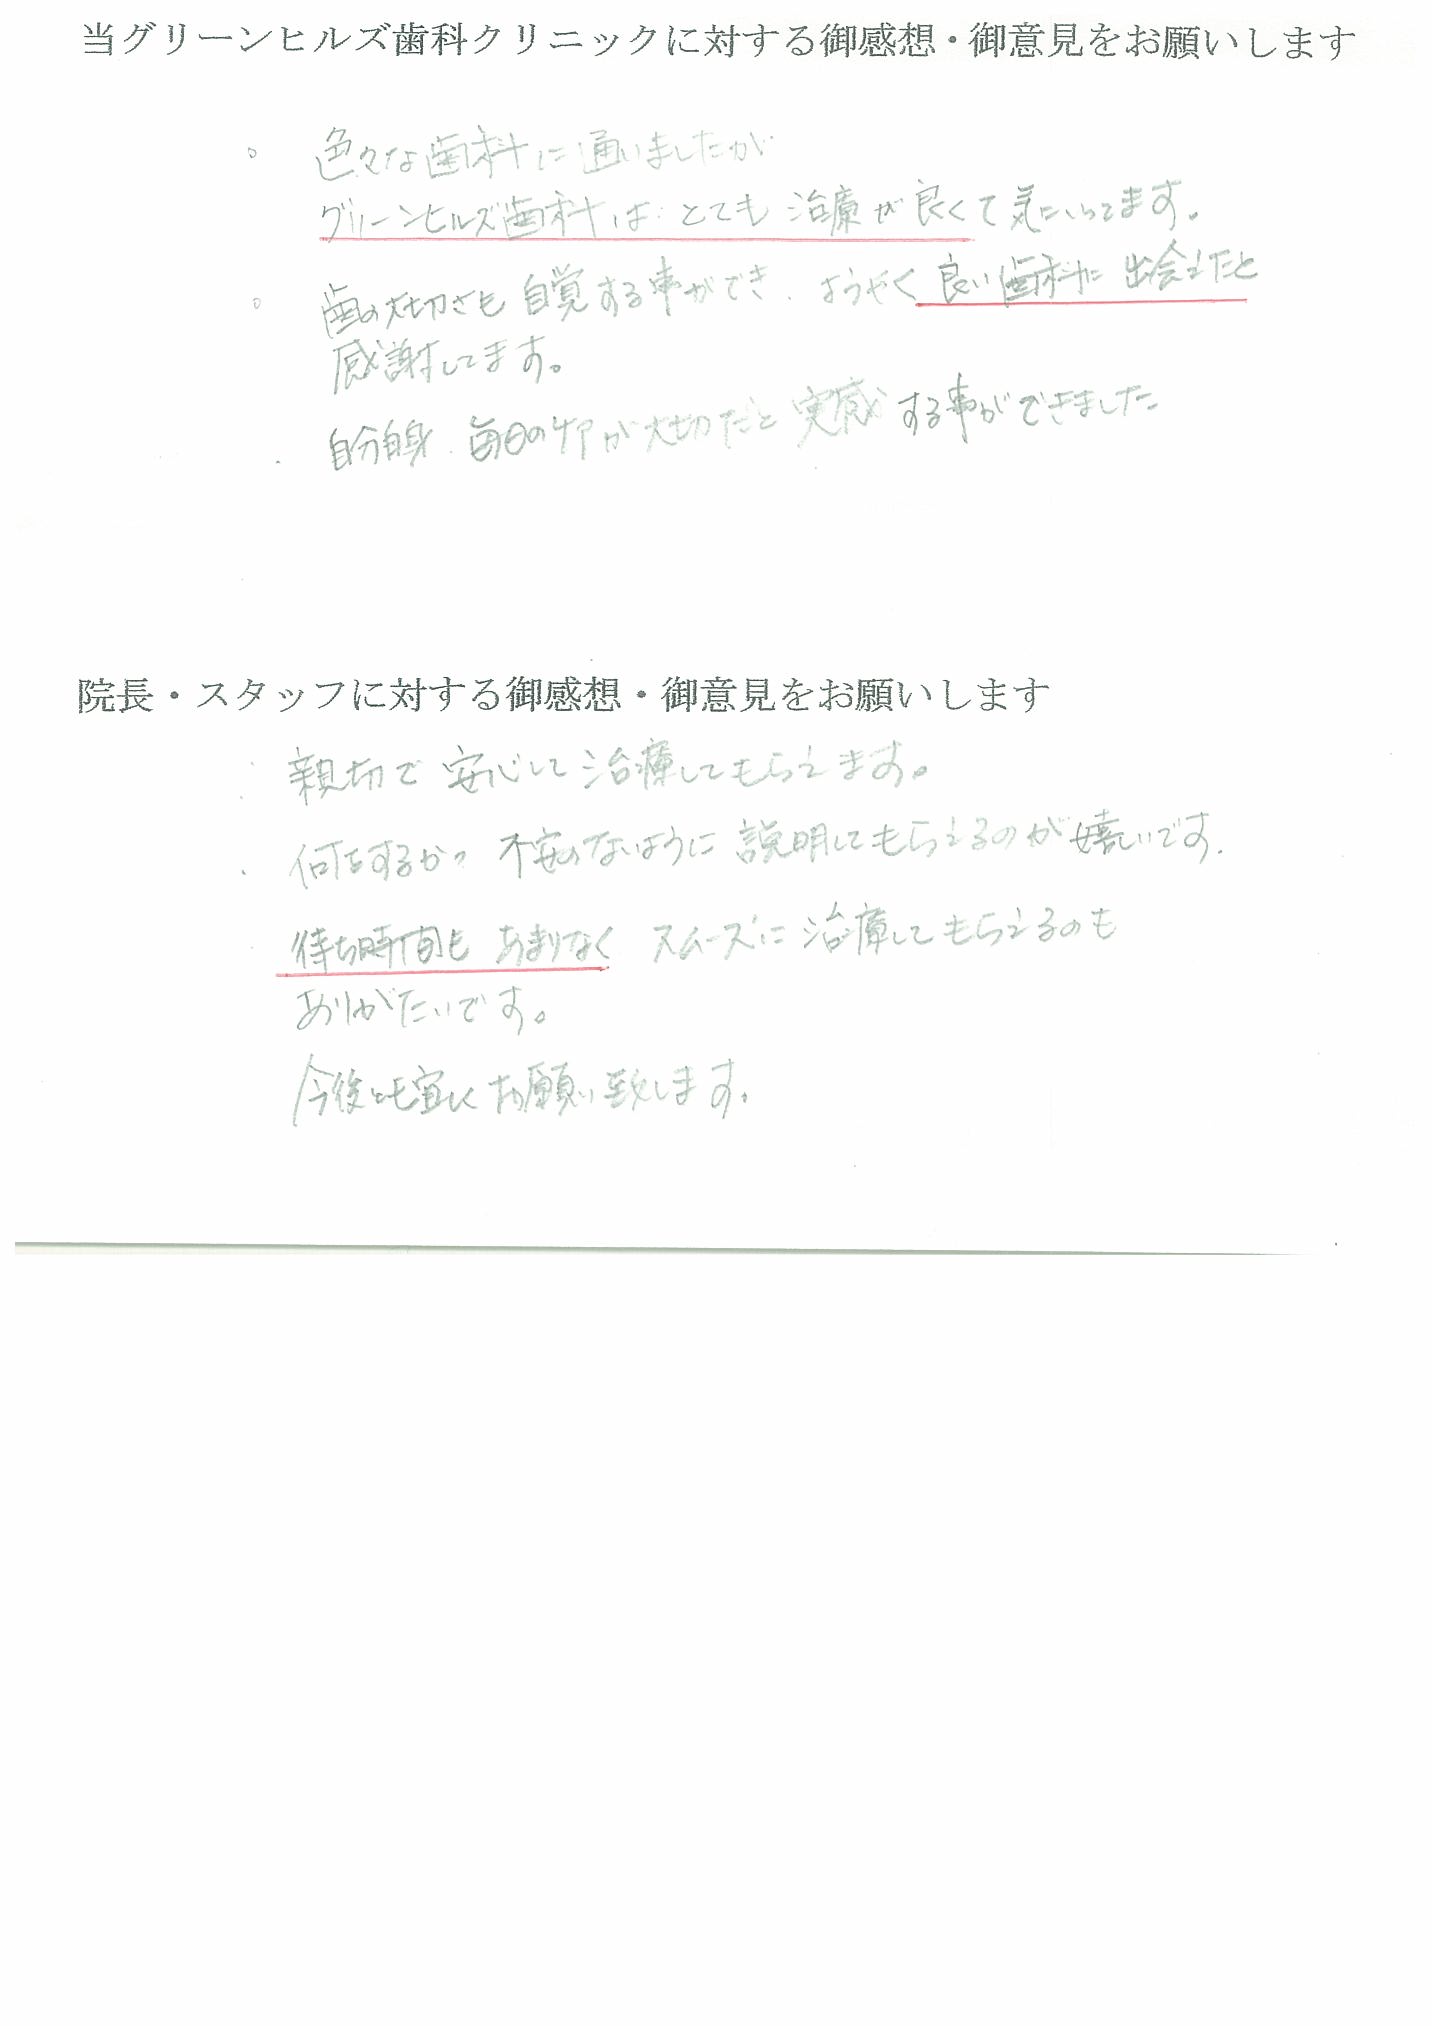 当グリーンヒルズ歯科クリニックに対する御感想・御意見をお願いします
。 色々な歯科に通いましたが
グリーンヒルズ歯科は とても 治療が良くて気にいってます。
。 歯の大切さも 自覚する事ができ、ようやく 良い歯科に 出会えたと
感謝してます。
・ 自分自身、毎日のケアが大切だと 実感する事ができました
院長・スタッフに対する御感想・御意見をお願いします
・ 親切で 安心して 治療してもらえます。
・ 何をするか 不安のないように 説明してもらえるのが 嬉しいです.
待ち時間も あまりなく スムーズに 治療してもらえるのも
ありがたいです。
今後とも宜しくお願い致します.